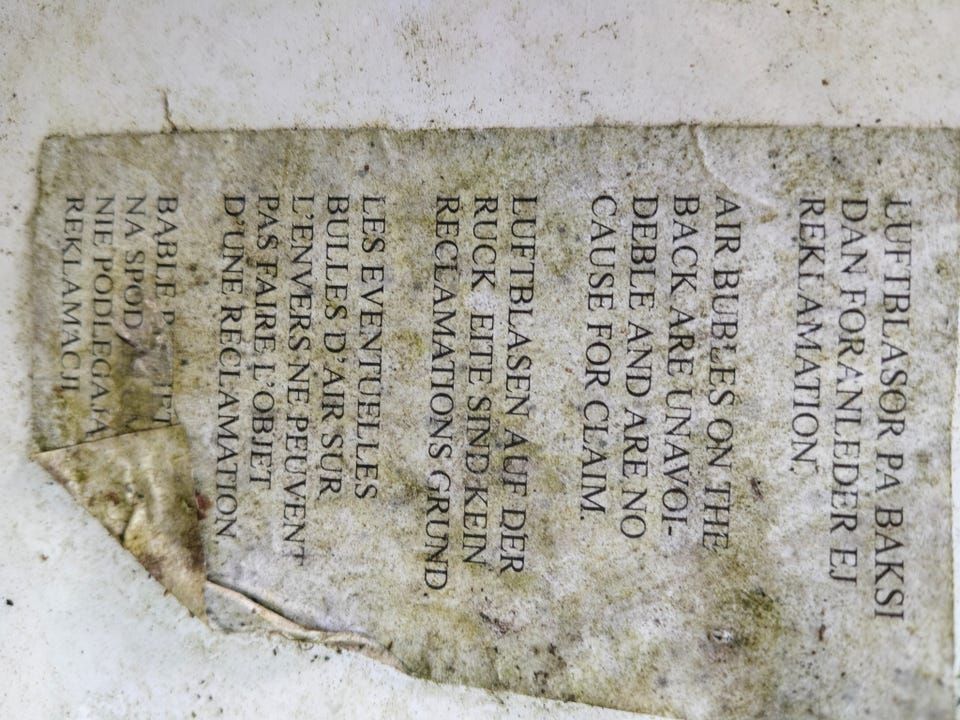 LUFTBLASOR PA BAKSI
DAN FORANLEDER EJ
REKLAMATION.
AIR BUBLES ON THE
BACK ARE UNAVOI-
DEBLE AND ARE NO
CAUSE FOR CLAIM.
LUFTBLASEN AUF DER
RUCK EITE SIND KEIN
RECLAMATIONS GRUND.
LES EVENTUELLES
BULLES D'AIR SUR
L'ENVERS NE PEUVENT
PAS FAIRE L'OBJET
D'UNE RECLAMATION
BABLE
NA SPOD
NIE PODLEGAJA
REKLAMACJI